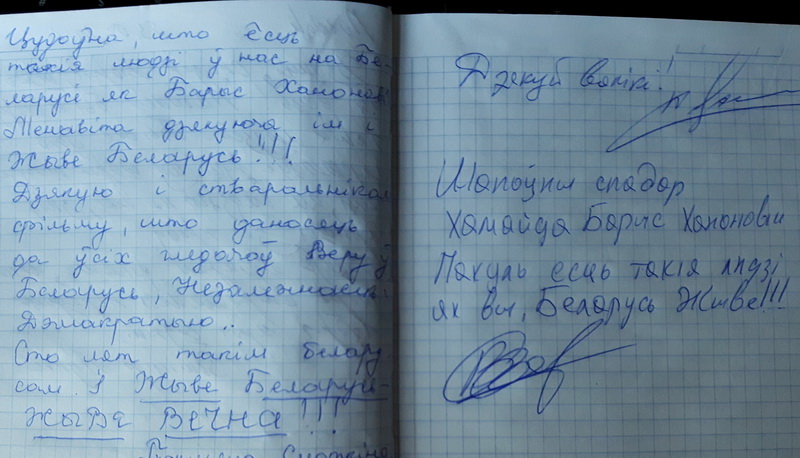 Цудоўна, што ёсць
такія людзі ў нас на Бе-
ларусі як Барыс Хамонаві
Менавіта дзякуюча ім і
Жыве Беларусь!!!
Дзякую і стваральнікам
фільму, што даносяць
да ўсіх гледачоў Веру ў
Беларусь, Незалежнасць
Дэмакратыю..
Сто лят такім белару
сам. І Жыве Беларусь-
ЖЫВЕ ВЕЧНА!!!
Дзякуй вялікі!
Шапоўны спадар
Хамайда Барис Хапонович
Пакуль есць такія людзі
як вы, Беларусь Жыве!!!